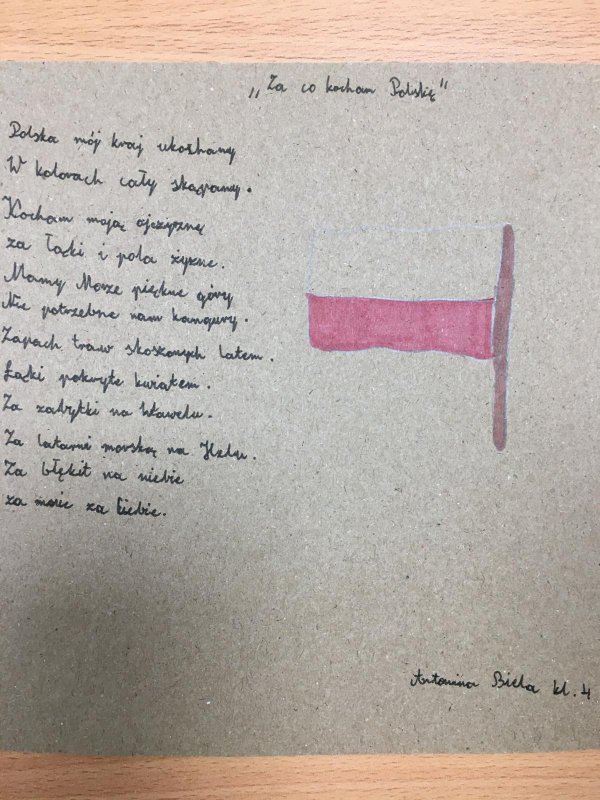 „Za co kocham Polskę"
Polska mój kraj ukochany
W kolorach cały skąpany.
Kocham moją ojczyznę
za łąki i pola żyzne.
Mamy Morze piękne góry
Nie potrzebne nam kangury.
Zapach traw skoszonych latem.
Łąki pokryte kwiatem.
Za zabytki na Wawelu.
Za latarni morską na Helu.
Za błękit na niebie
za mnie za Ciebie.
Antonina Biela kl. 4